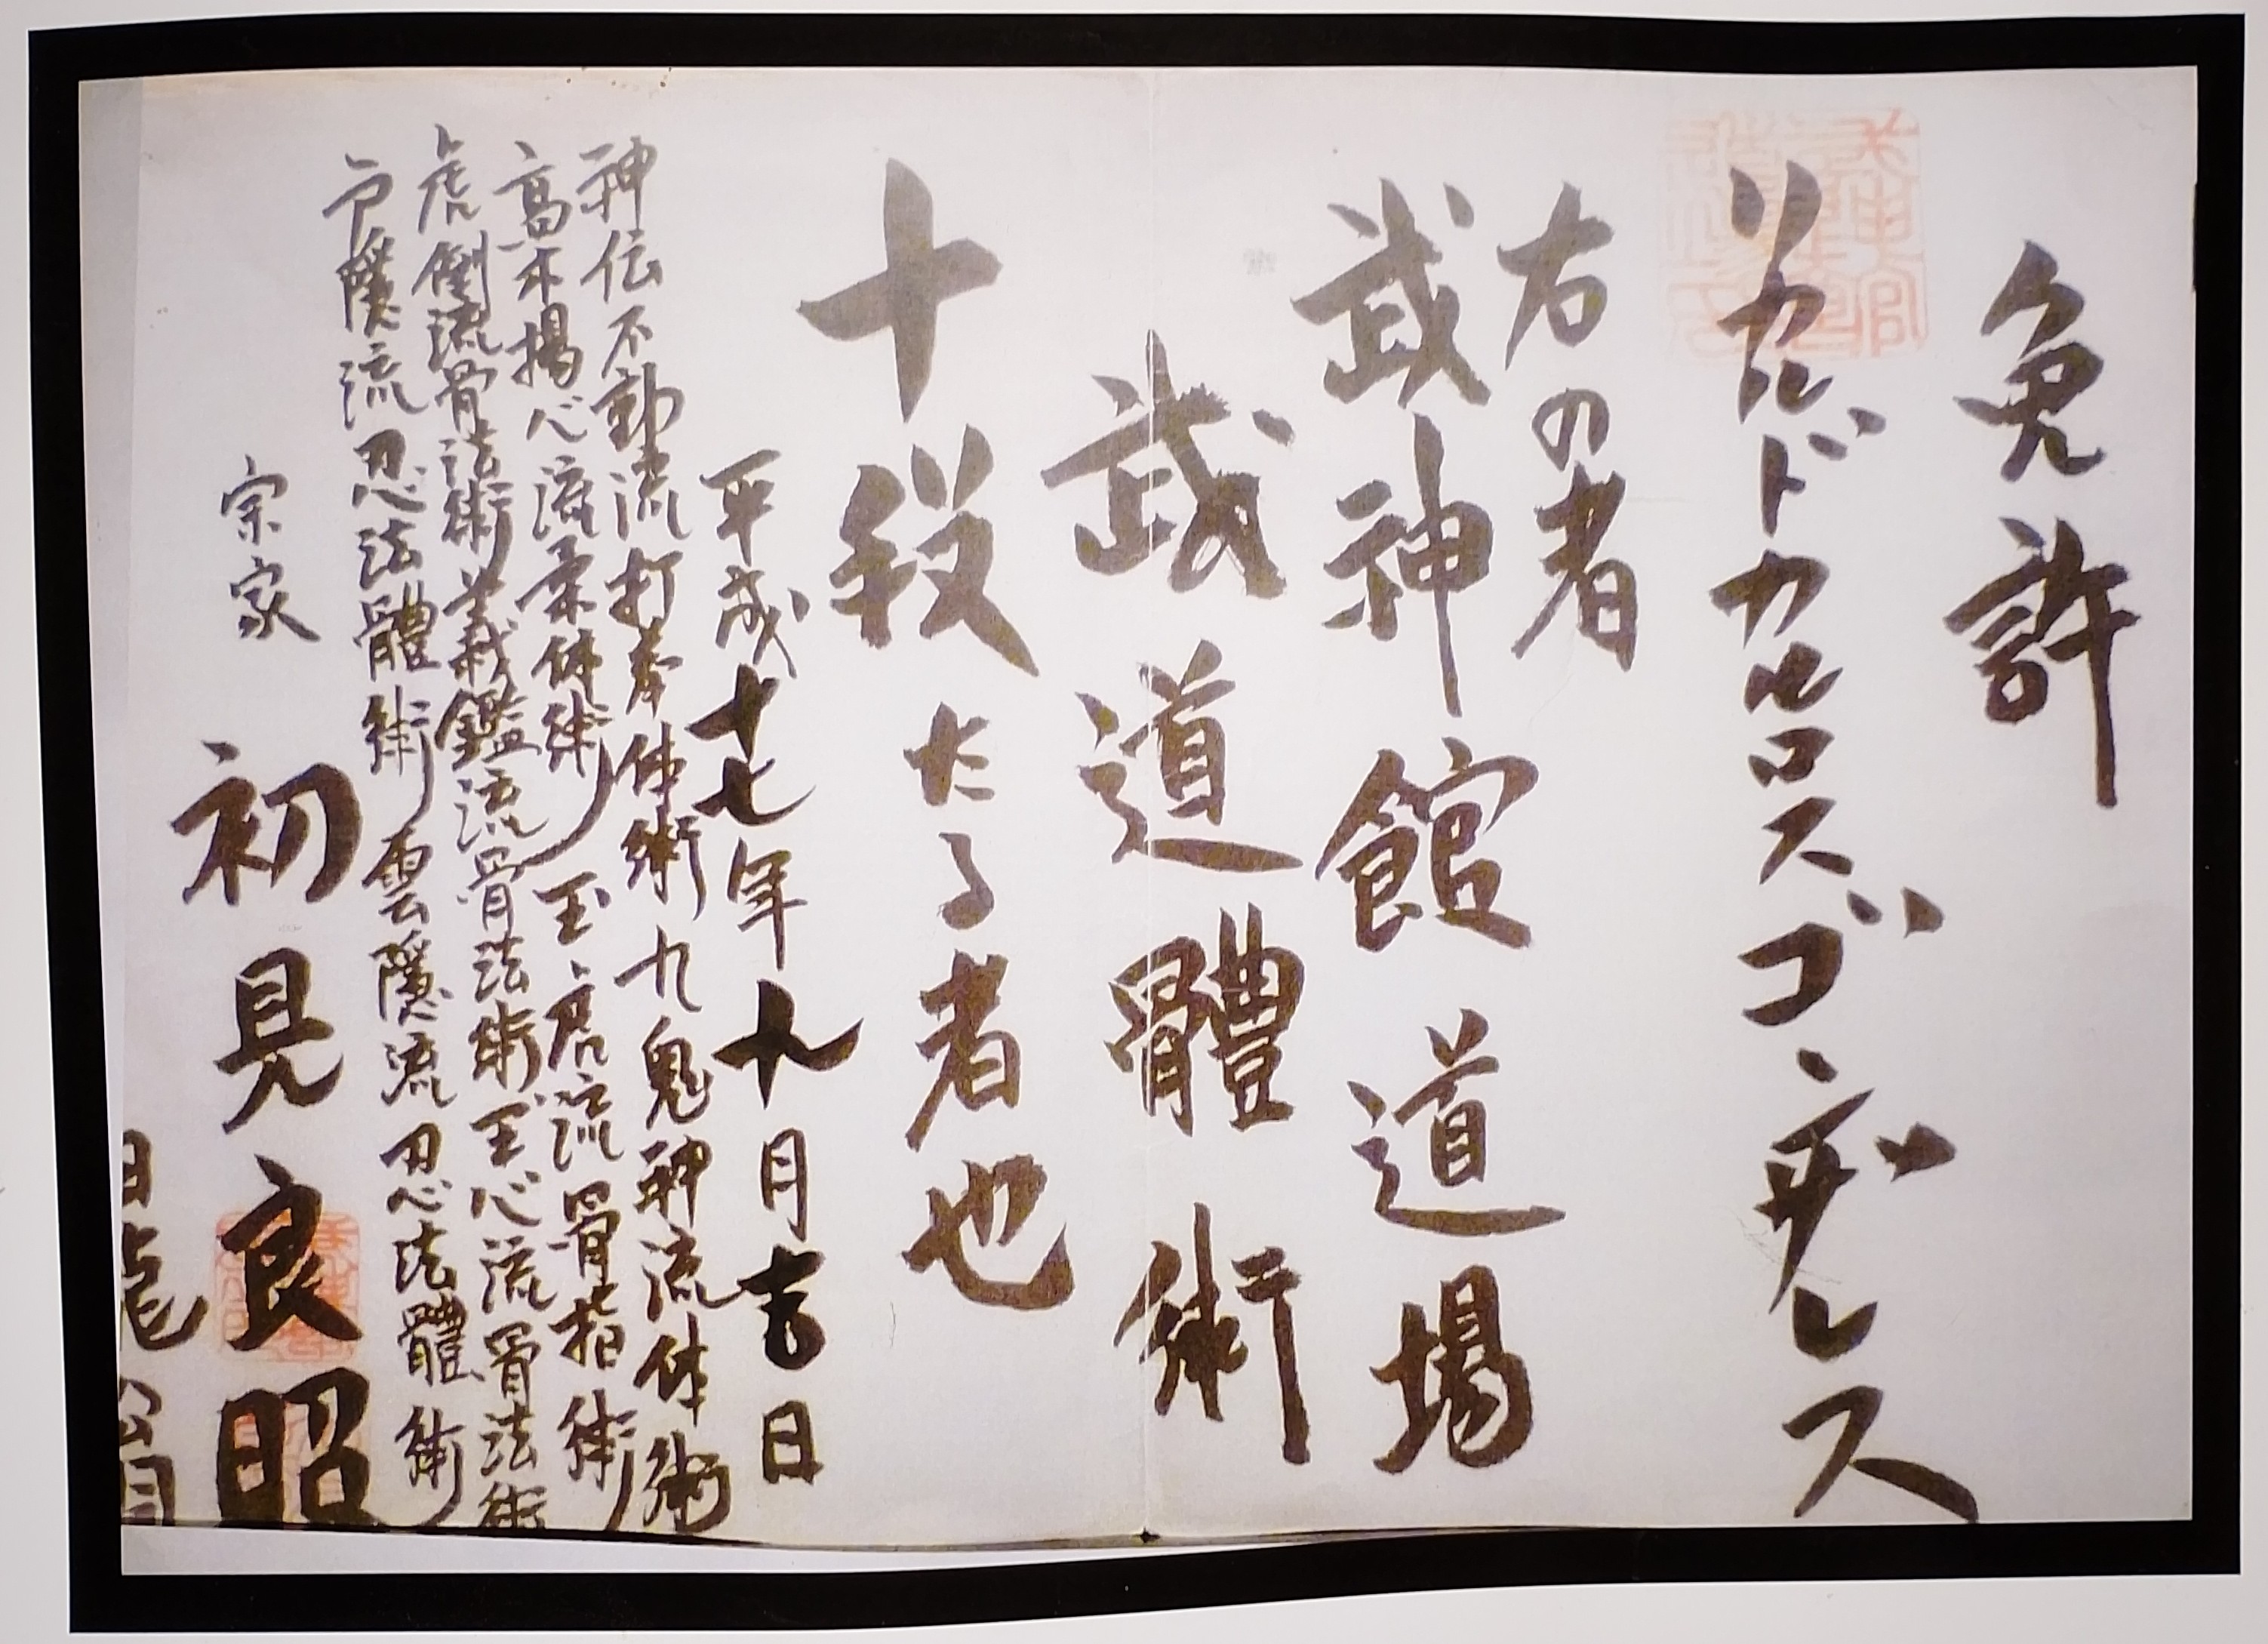 免許
リカルドカルロスゴンザレス
右の者
武神館道場
武道體術
十段たる者也
平成十七年九月吉日
神伝不動流打拳体術九鬼神流体術
高木揚心流柔体術玉虎流骨指術
虎倒流骨法術義鑑流骨法術玉心流骨法術
戸隠流忍法體術雲隠流忍法體術
宗家 初見良昭
白龍翁